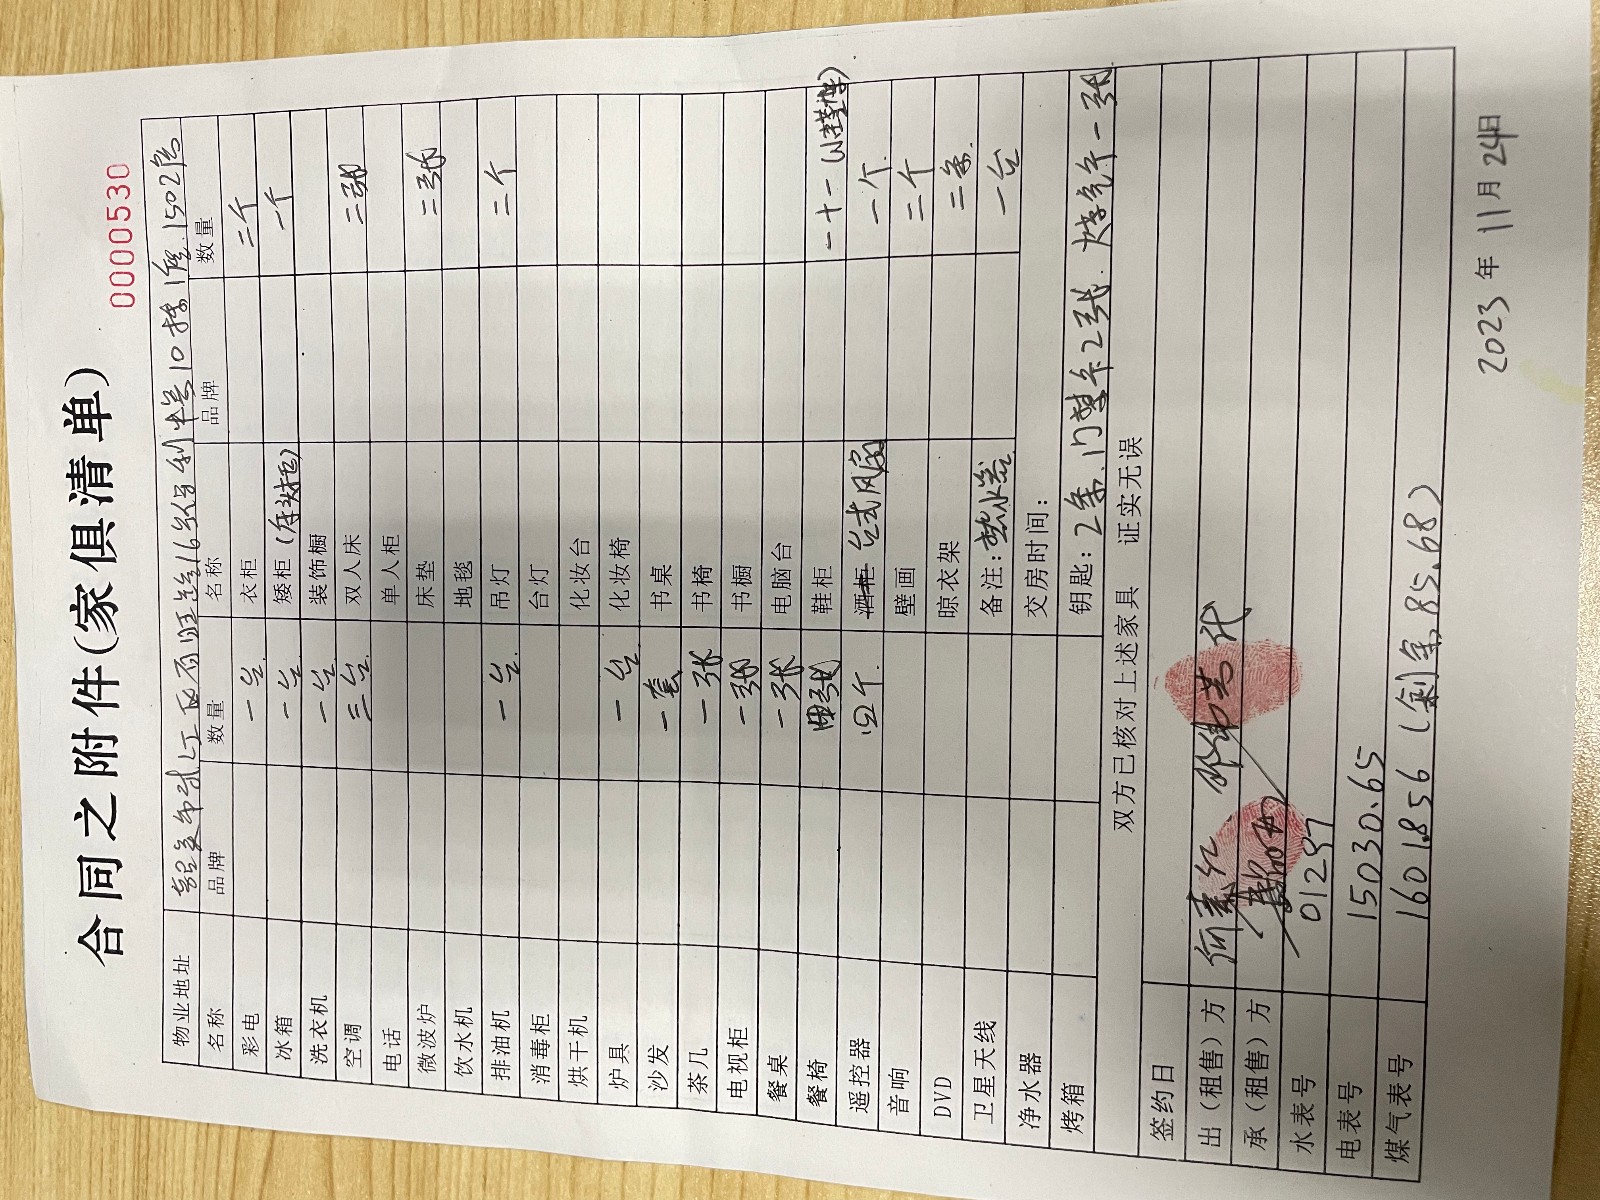 合同之附件(家俱清单)
0000530
物业地址 10 1502房
名称 品牌 数量 名称 品牌 数量
彩电 一台 衣柜 二个
冰箱 一台 矮柜(床头柜) 一个
洗衣机 一台 装饰橱
空调 三台 双人床 二张
电话 单人柜
微波炉 床垫 二张
饮水机 地毯
排油机 一台 吊灯 二个
消毒柜 台灯
烘干机 化妆台
炉具 一台 化妆椅
沙发 一套 书桌
茶几 一张 书椅
电视柜 一张 书橱
餐桌 一张 电脑台
餐椅 四张 鞋柜 一个
遥控器 四个 酒柜 台式风扇 一个
音响 壁画 二个
DVD 晾衣架 二条
卫星天线 备注:热水器 一台
净水器 交房时间:
烤箱 钥匙:2条.门禁卡2张.燃气卡一张
双方已核对上述家具 证实无误
签约日
出(租售)方 代
承(租售)方
水表号 01257
电表号 15030.65
煤气表号 1601.856(剩余85.68)
2023年11月24日